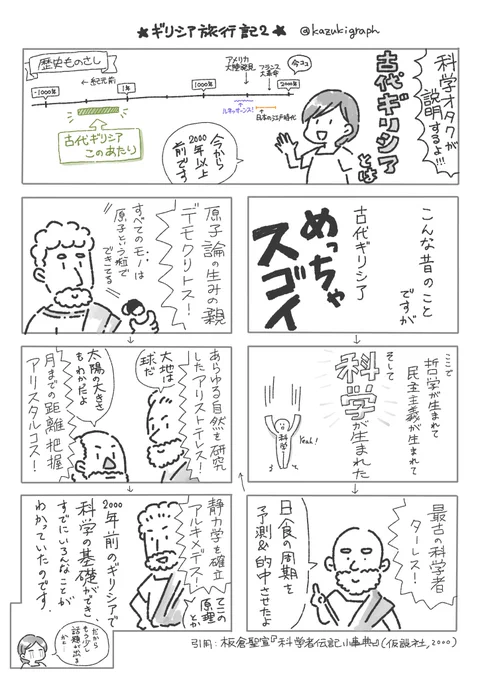 ★ギリシア旅行記2★
@kazukigraph
科学オタクが
説明するよ!!!
古代ギリシア
とは
歴史ものさし
←紀元前
-1000年
1年
1000年
2000年
アメリカ
大陸発見
フランス
大革命
今ココ
ルネッサーンス!
日本の江戸時代
古代ギリシア
このあたり
今から
2000年以上
前です
こんな昔のこと
ですが
古代ギリシア
めっちゃ
スゴイ
ここで
哲学が生まれて
民主主義が生まれて
そして
科学が生まれた
科学
Yeah!
最古の科学者
ターレス!
日食の周期を
予測&的中させたよ
原子論の生みの親
デモクリトス!
すべてのモノは
原子という粒で
できてる
あらゆる自然を研究
したアリストテレス!
大地は
球だ
太陽の大きさ
もわかるよ
月までの距離把握
アリスタルコス!
静力学を確立
アルキメデス!
てこの
原理
とか
2000年前のギリシアで
科学の基礎ができ、
すでにいろんなことが
わかっていたのです.
だから
もう少し
話題が出る
かと…
引用:板倉聖宣『科学者伝記小事典』(仮説社,2000)